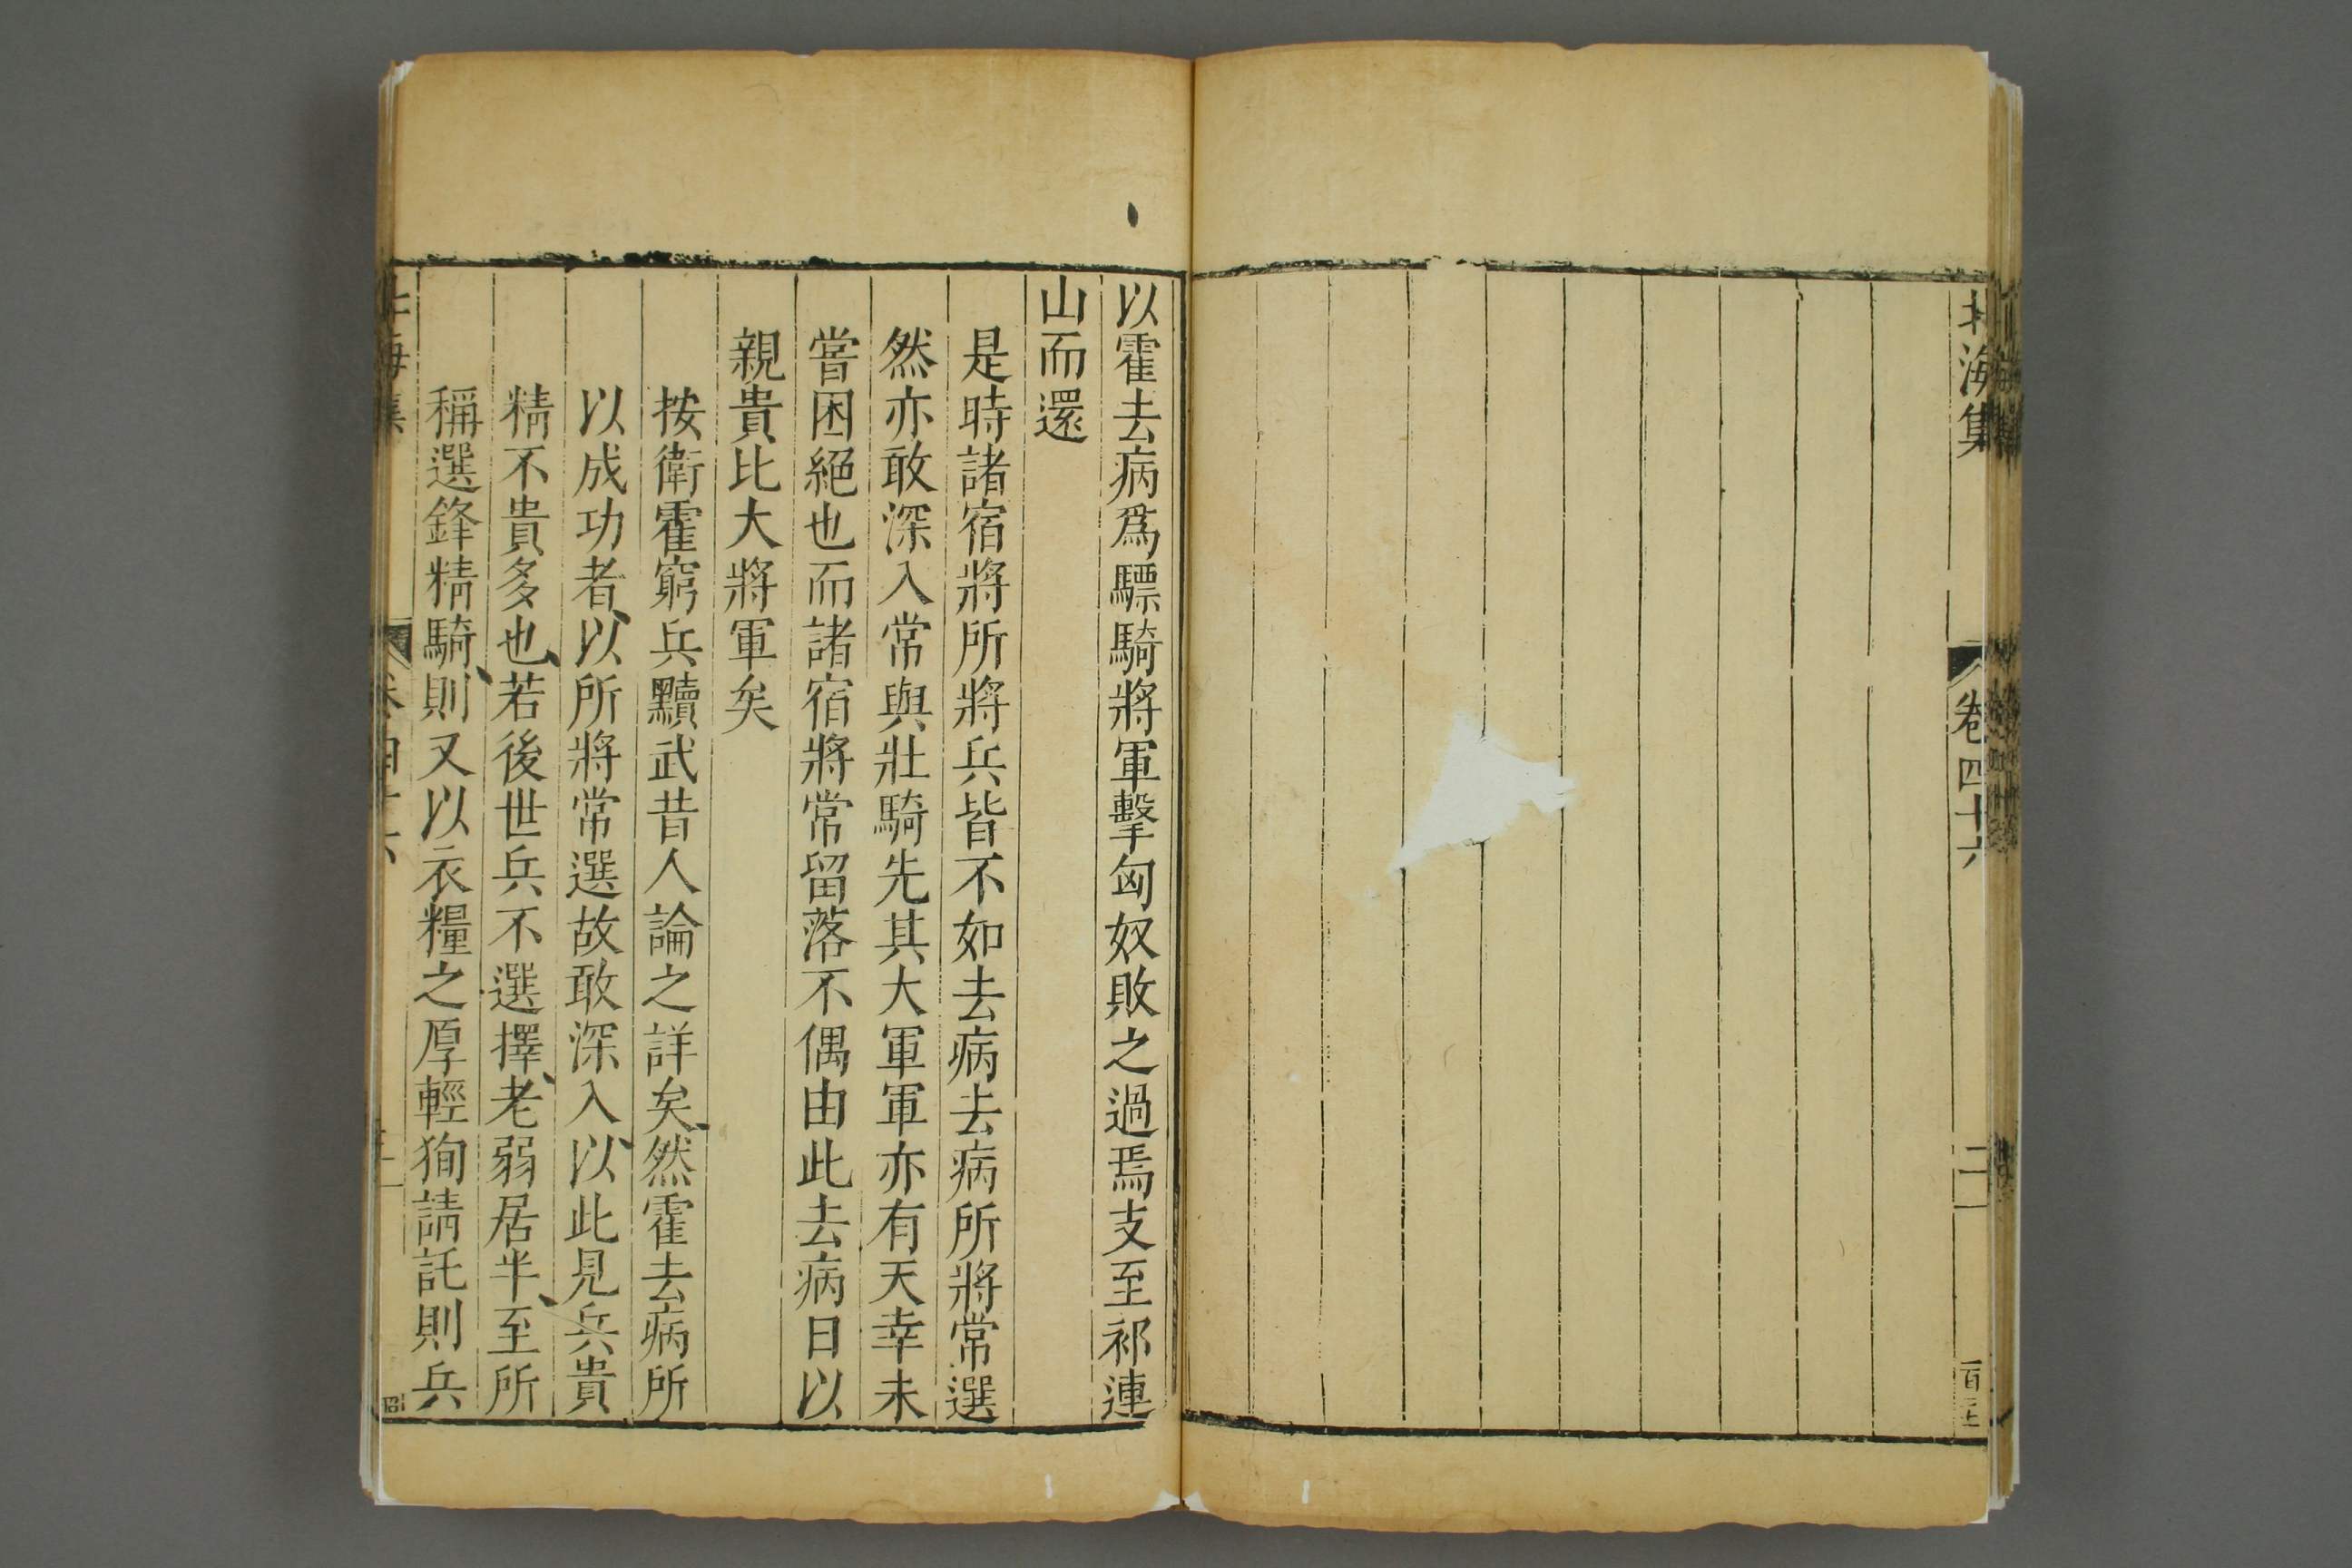 北海集
卷四十六
二
以霍去病爲驃騎將軍擊匈奴敗之過焉支至祁連
山而還
是時諸宿將所將兵皆不如去病去病所將常選
然亦敢深入常與壯騎先其大軍軍亦有天幸未
嘗困絕也而諸宿將常留落不偶由此去病日以
親貴比大將軍矣
按衛霍窮兵黷武昔人論之詳矣、然霍去病所
以成功者、以所將常選故敢深入、以此見兵貴
精不貴多也、若後世兵不選擇、老弱居半、至所
稱選鋒精騎、則又以衣糧之厚輕狥請託則兵